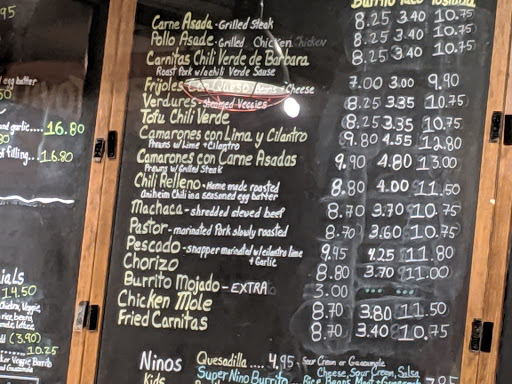 .95
egg butter
50
and garlic.... 16.80
filling... 16.80
ials
14.50
rice, beans
(3.90)
10.25
Burrito Taco Tostada
Carne Asada - Grilled Steak 8.25 3.40 10.75
Pollo Asade - Grilled Chicken 8.25 3.40 10.75
Carnitas Chili Verde de Barbara 8.25 3.40 10.75
Roast Pork w/a chili Verde Sause
Frijoles Con Queso Beans + Cheese 7.00 3.00 9.90
Verdures - steamed veggies 8.25 3.35 10.75
Tofu Chili Verde 8.25 3.35 10.75
Camarones con Lima y Cilantro 9.80 4.55 12.80
Prawns w/ Lime + Cilantro
Camarones con Carne Asadas 9.90 4.80 13.00
Prawns w/ Grilled Steak
Chili Relleno - Home made roasted 8.80 4.00 11.50
Anaheim Chili in a seasoned egg batter
Machaca - shredded steved beef 8.70 3.70 10.75
Pastor - marinated Pork slowly roasted 8.70 3.60 10.75
Pescado - snapper marinated w/ cilantro lime 9.45 4.25 11.80
+ Garlic
Chorizo 8.80 3.70 11.00
Burrito Mojado - EXTRA 3.00
Chicken Mole 8.70 3.80 11.50
Fried Carnitas 8.70 3.40 10.75
Ninos Quesadilla .... 4.95 - Sour Cream or Guacamole
Cheese, Sour Cream, Salsa
Kids Super Nino Burrito